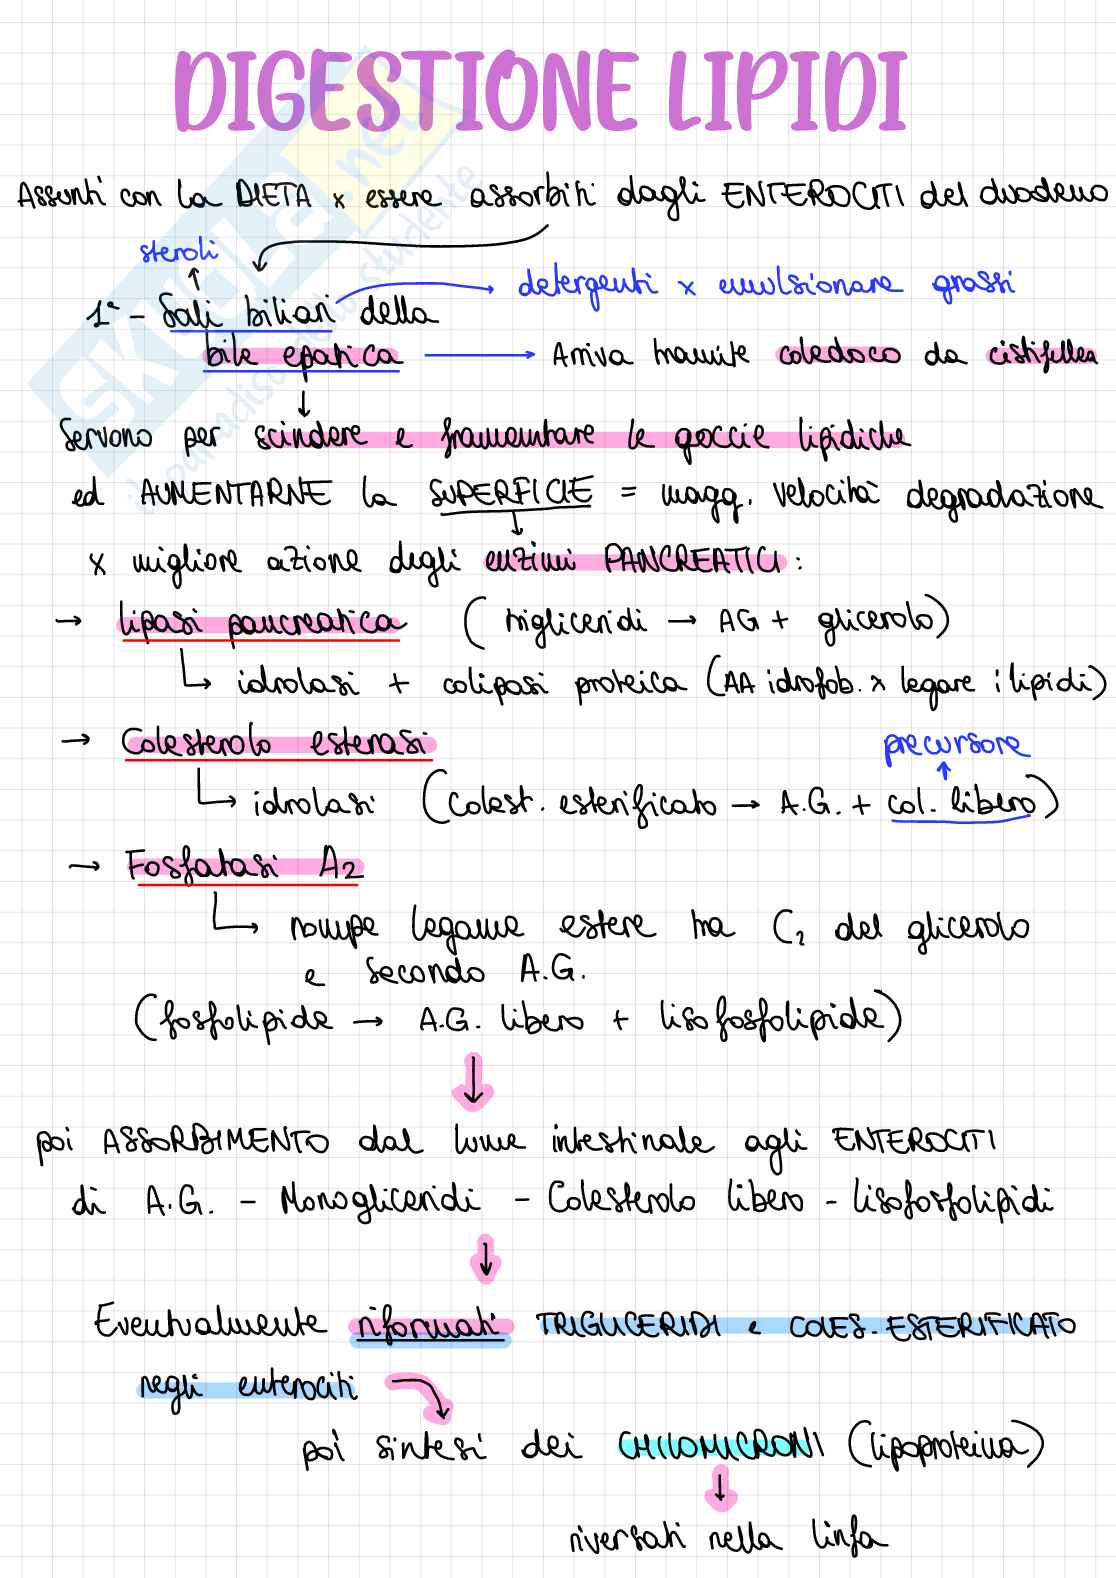 DIGESTIONE LIPIDI
Assunti con la DIETA x essere assorbiti dagli ENTEROCITI del duodeno
steroli
1° - Sali biliari della
detergenti x emulsionare grassi
bile epatica → Arriva tramite coledoco da cistifellea
Servono per scindere e frammentare le goccie lipidiche
ed AUMENTARNE la SUPERFICIE = magg. velocità degradazione
x migliore azione degli enzimi PANCREATICI:
→ lipasi pancreatica (trigliceridi → AG + glicerolo)
↳ idrolasi + colipasi proteica (AA idrofob. x legare i lipidi)
→ Colesterolo esterasi
precursore
↳ idrolasi (Colest. esterificato → A.G. + col. libero)
→ Fosfatasi A2
↳ rompe legame estere tra C2 del glicerolo
e secondo A.G.
(fosfolipide → A.G. libero + lisofosfolipide)
poi ASSORBIMENTO dal lume intestinale agli ENTEROCITI
di A.G. - Monogliceridi - Colesterolo libero - lisofosfolipidi
Eventualmente riformati TRIGLICERIDI e COLES. ESTERIFICATO
negli enterociti
poi sintesi dei CHILOMICRONI (lipoproteina)
riversati nella linfa
SKUOLA.net
il paradiso dello studente